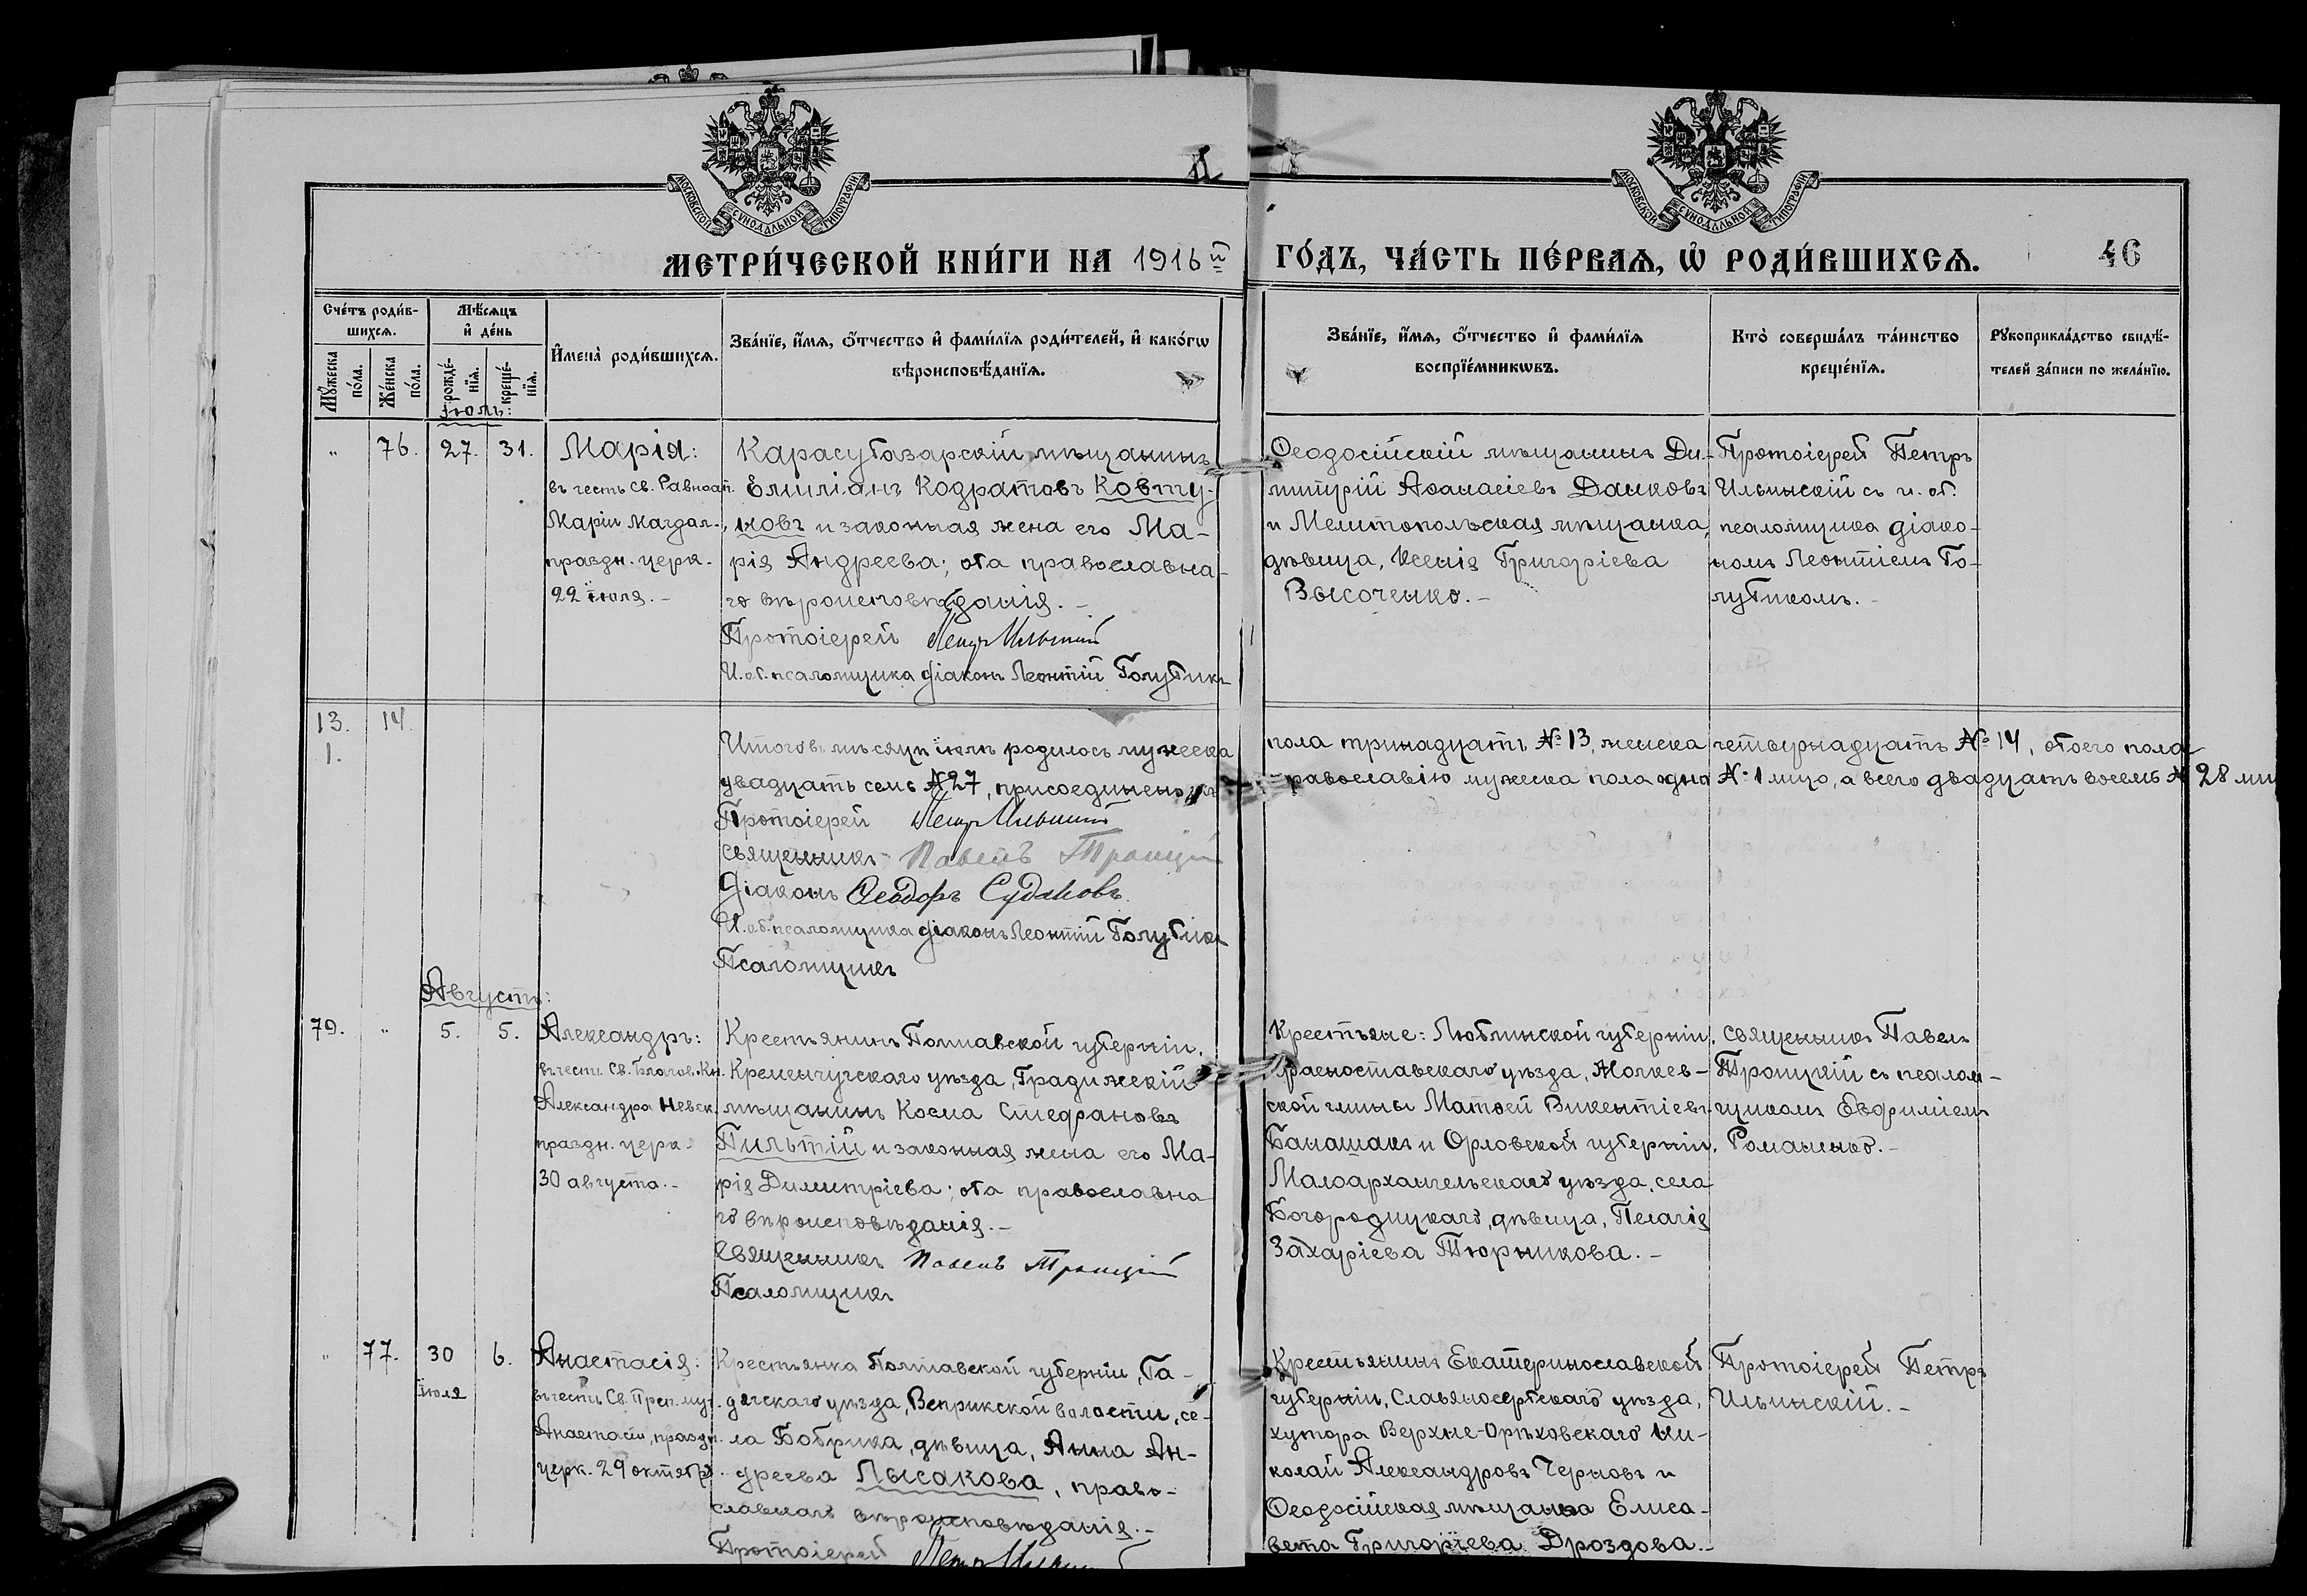 МОСКОВСКОЙ СѴНОДАЛЬНОЙ ТИПОГРАФІИ
МОСКОВСКОЙ СѴНОДАЛЬНОЙ ТИПОГРАФІИ
МЕТРИ́ЧЕСКОЙ КНИ́ГИ НА 1916й
ГО́ДЪ, ЧА́СТЬ ПЕ́РВАѦ, Ѡ РОДИ́ВШИХСѦ.
46
Сче́тъ роди́в-
шихсѧ.
Мꙋ́жеска по́ла.
Же́нска по́ла.
Мѣ́сѧцъ
и де́нь
рожде́-
нїѧ.
креще́-
нїѧ.
Имена̀ роди́вшихсѧ.
Зва́нїе, и́мѧ, о́тчество и фами́лїѧ роди́телей, и како́гѡ
вѣроисповѣ́данїѧ.
Зва́нїе, и́мѧ, о́тчество и фами́лїѧ
воспрїе́мникѡвъ.
Кто̀ соверша́лъ та́инство
креще́нїѧ.
Рꙋкоприкла́дство свидѣ́-
телей за́писи по жела́нїю.
Іюль:
„ 76. 27. 31.
Марія:
въ честь Св. Равноап.
Маріи Магдал.,
праздн. церк.
22 іюля.-
Карасубазарскій мѣщанинъ
Емиліанъ Кодратовъ Ковту-
новъ и законная жена его Ма-
рія Андреева; оба православна-
го вѣроисповѣданія.-
Протоіерей Петръ Ильинскій
И. об. псаломщика діаконъ Леонтій Голубикъ
Ѳеодосійскій мѣщанинъ Ди-
митрій Аѳанасіевъ Данковъ
и Мелитопольская мѣщанка,
дѣвица, Ксенія Григоріева
Высоченко.-
Протоіерей Петръ
Ильинскій съ и. об.
псаломщика діако-
номъ Леонтіемъ Го-
лубикомъ.-
13. 14.
1.
Итого въ мѣсяцѣ іюлѣ родилось мужеска
пола тринадцать №13, женска четырнадцать №14, обоего пола
двадцать семь №27, присоединено къ
православію мужеска пола одно №1 лицо, а всего двадцать восемь №28
Протоіерей Петръ Ильинскій
Священникъ Павелъ Троицкій
Діаконъ Ѳеодоръ Судаковъ.
И. об. псаломщика діаконъ Леонтій Голубикъ
Псаломщикъ
Августъ:
79. „ 5. 5.
Александръ:
въ честь Св. Благов. Кн.
Александра Невск.
праздн. церк.
30 августа.-
Крестьянинъ Полтавской губерніи,
Кременчугскаго уѣзда, Градижскій
мѣщанинъ Косма Стефановъ
Пильтій и законная жена его Ма-
рія Димитріева; оба православна
го вѣроисповѣданія.-
Священникъ Павелъ Троицкій
Псаломщикъ
Крестьяне: Люблинской губерніи,
Красноставскаго уѣзда, Жолкев-
ской гмины Матѳей Викентіевъ
Банашакъ и Орловской губерніи,
Малоархангельскаго уѣзда, села
Богородицкаго, дѣвица, Пелагія
Захаріева Тюрникова.-
Священникъ Павелъ
Троицкій съ псалом-
щикомъ Евфиміемъ
Романенко.-
„ 77. 30 6.
іюля
Анастасія:
въ честь Св. Преп. муч.
Анастасіи, праздн.
церк. 29 октября.
Крестьянка Полтавской губерніи, Га-
дячскаго уѣзда, Веприкской волости, се-
ла Бобрика, дѣвица, Анна Ан-
дреева Лысакова, право-
славнаго вѣроисповѣданія.-
Протоіерей Петръ Ильинскій
Крестьянинъ Екатеринославской
губерніи, Славяносербскаго уѣзда,
хутора Верхне-Орѣховскаго Ни-
колай Александровъ Черновъ и
Ѳеодосійская мѣщанка Елиса-
вета Григоріева Дроздова.-
Протоіерей Петръ
Ильинскій.-